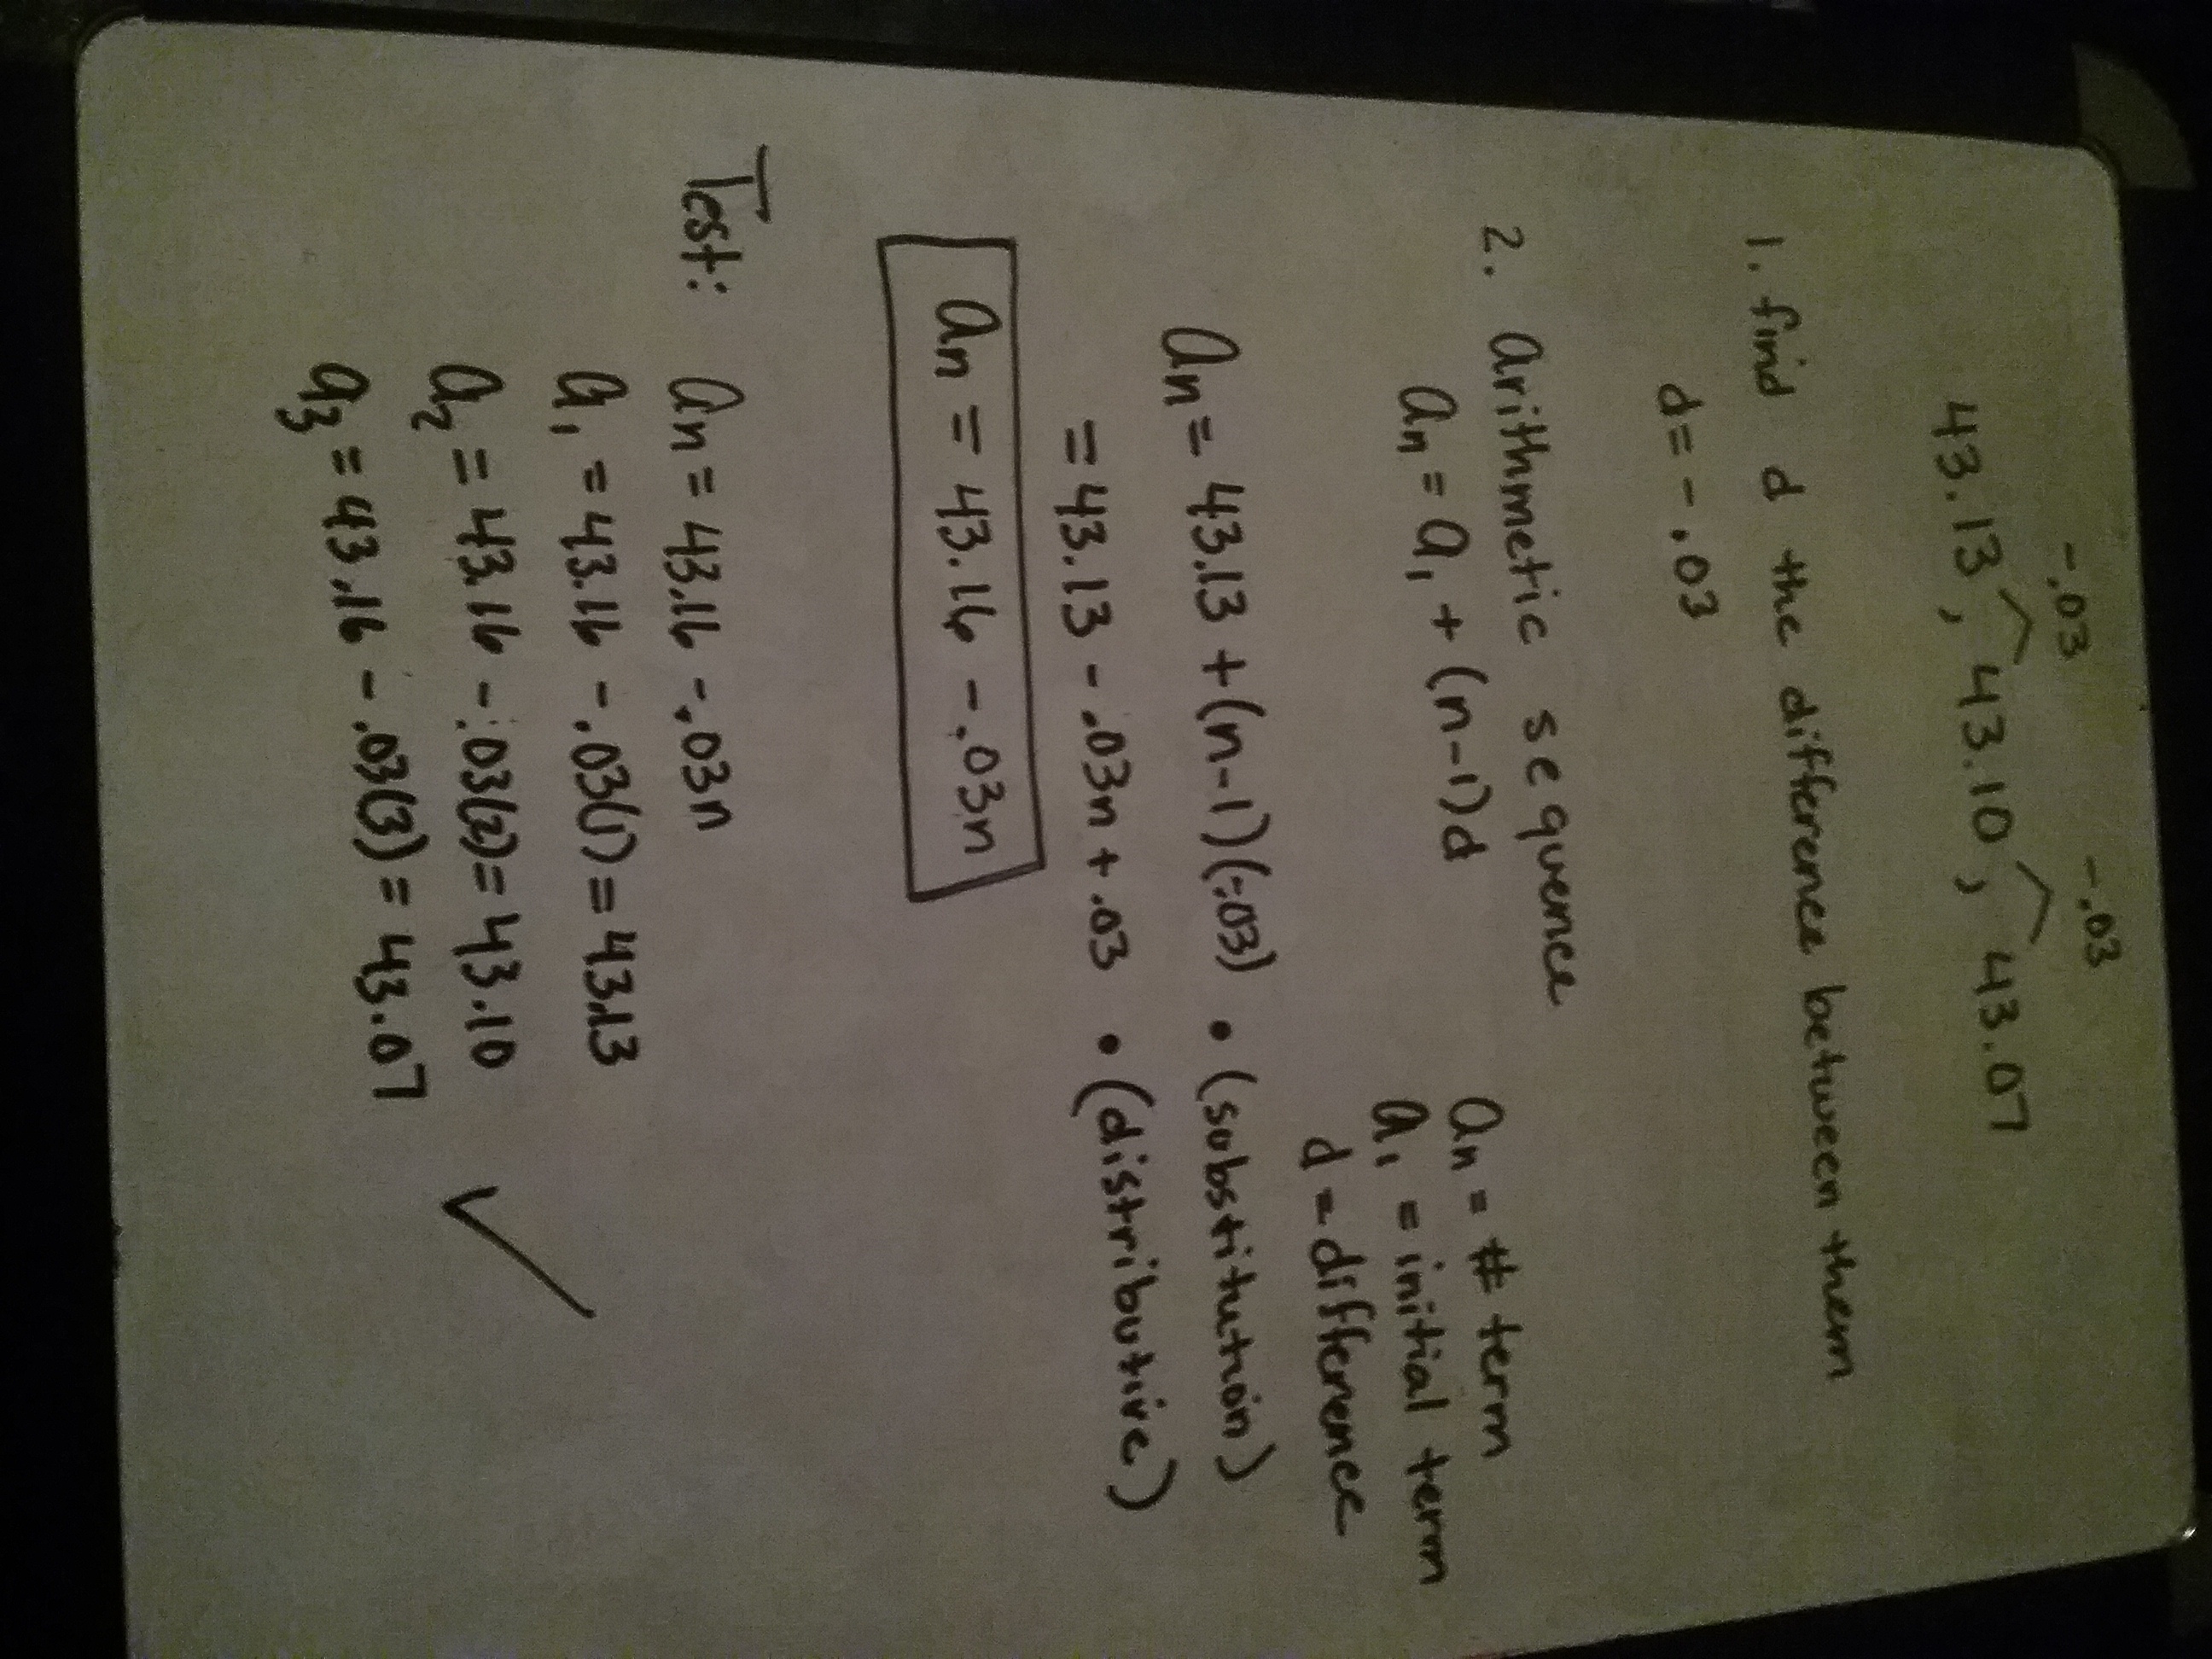 -.03 -.03
43.13, 43.10, 43.07
1. find d the difference between them
d = -.03
2. arithmetic sequence
an = a1 + (n-1)d
an = # term
a1 = initial term
d = difference
an = 43.13 + (n-1)(-.03) • (substitution)
= 43.13 - .03n + .03 • (distributive)
an = 43.16 - .03n
Test: an = 43.16 - .03n
a1 = 43.16 - .03(1) = 43.13
a2 = 43.16 - .03(2) = 43.10
a3 = 43.16 - .03(3) = 43.07 ✓